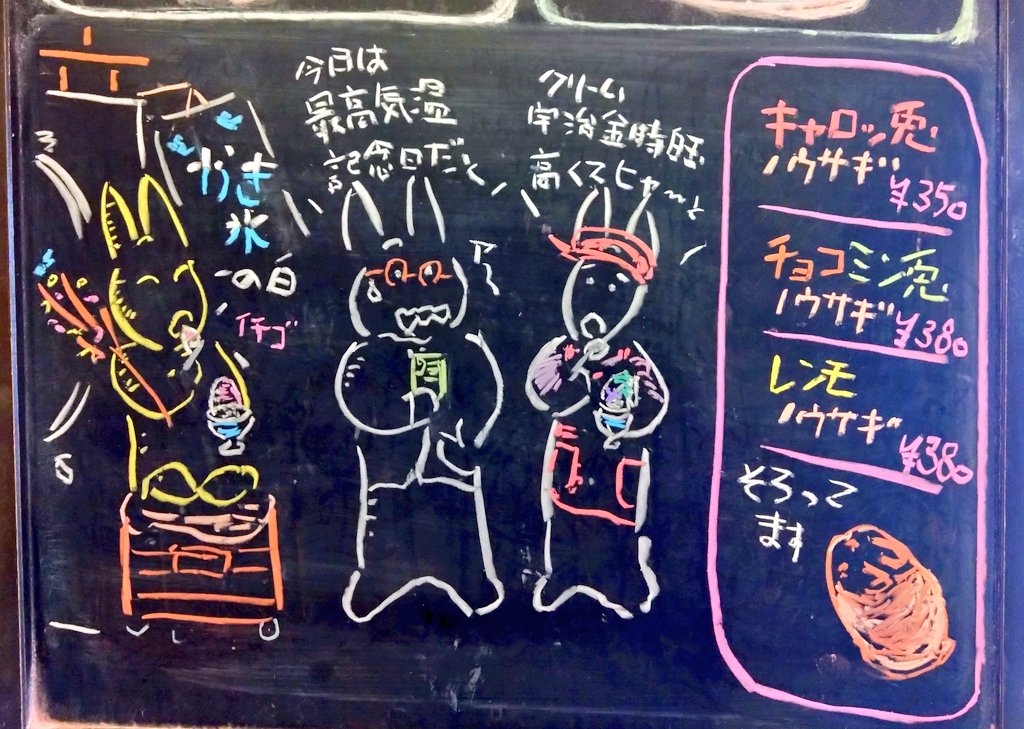 かき
氷
の日
イチゴ
今日は
最高気温
記念日だく
クリーム
宇治金時旺
高くてヒャ〜よ
キャロッ兎
ノウサギ
¥350
チョコミン兎
ノウサギ
¥380
レンモ
ノウサギ
¥380
そろって
ます